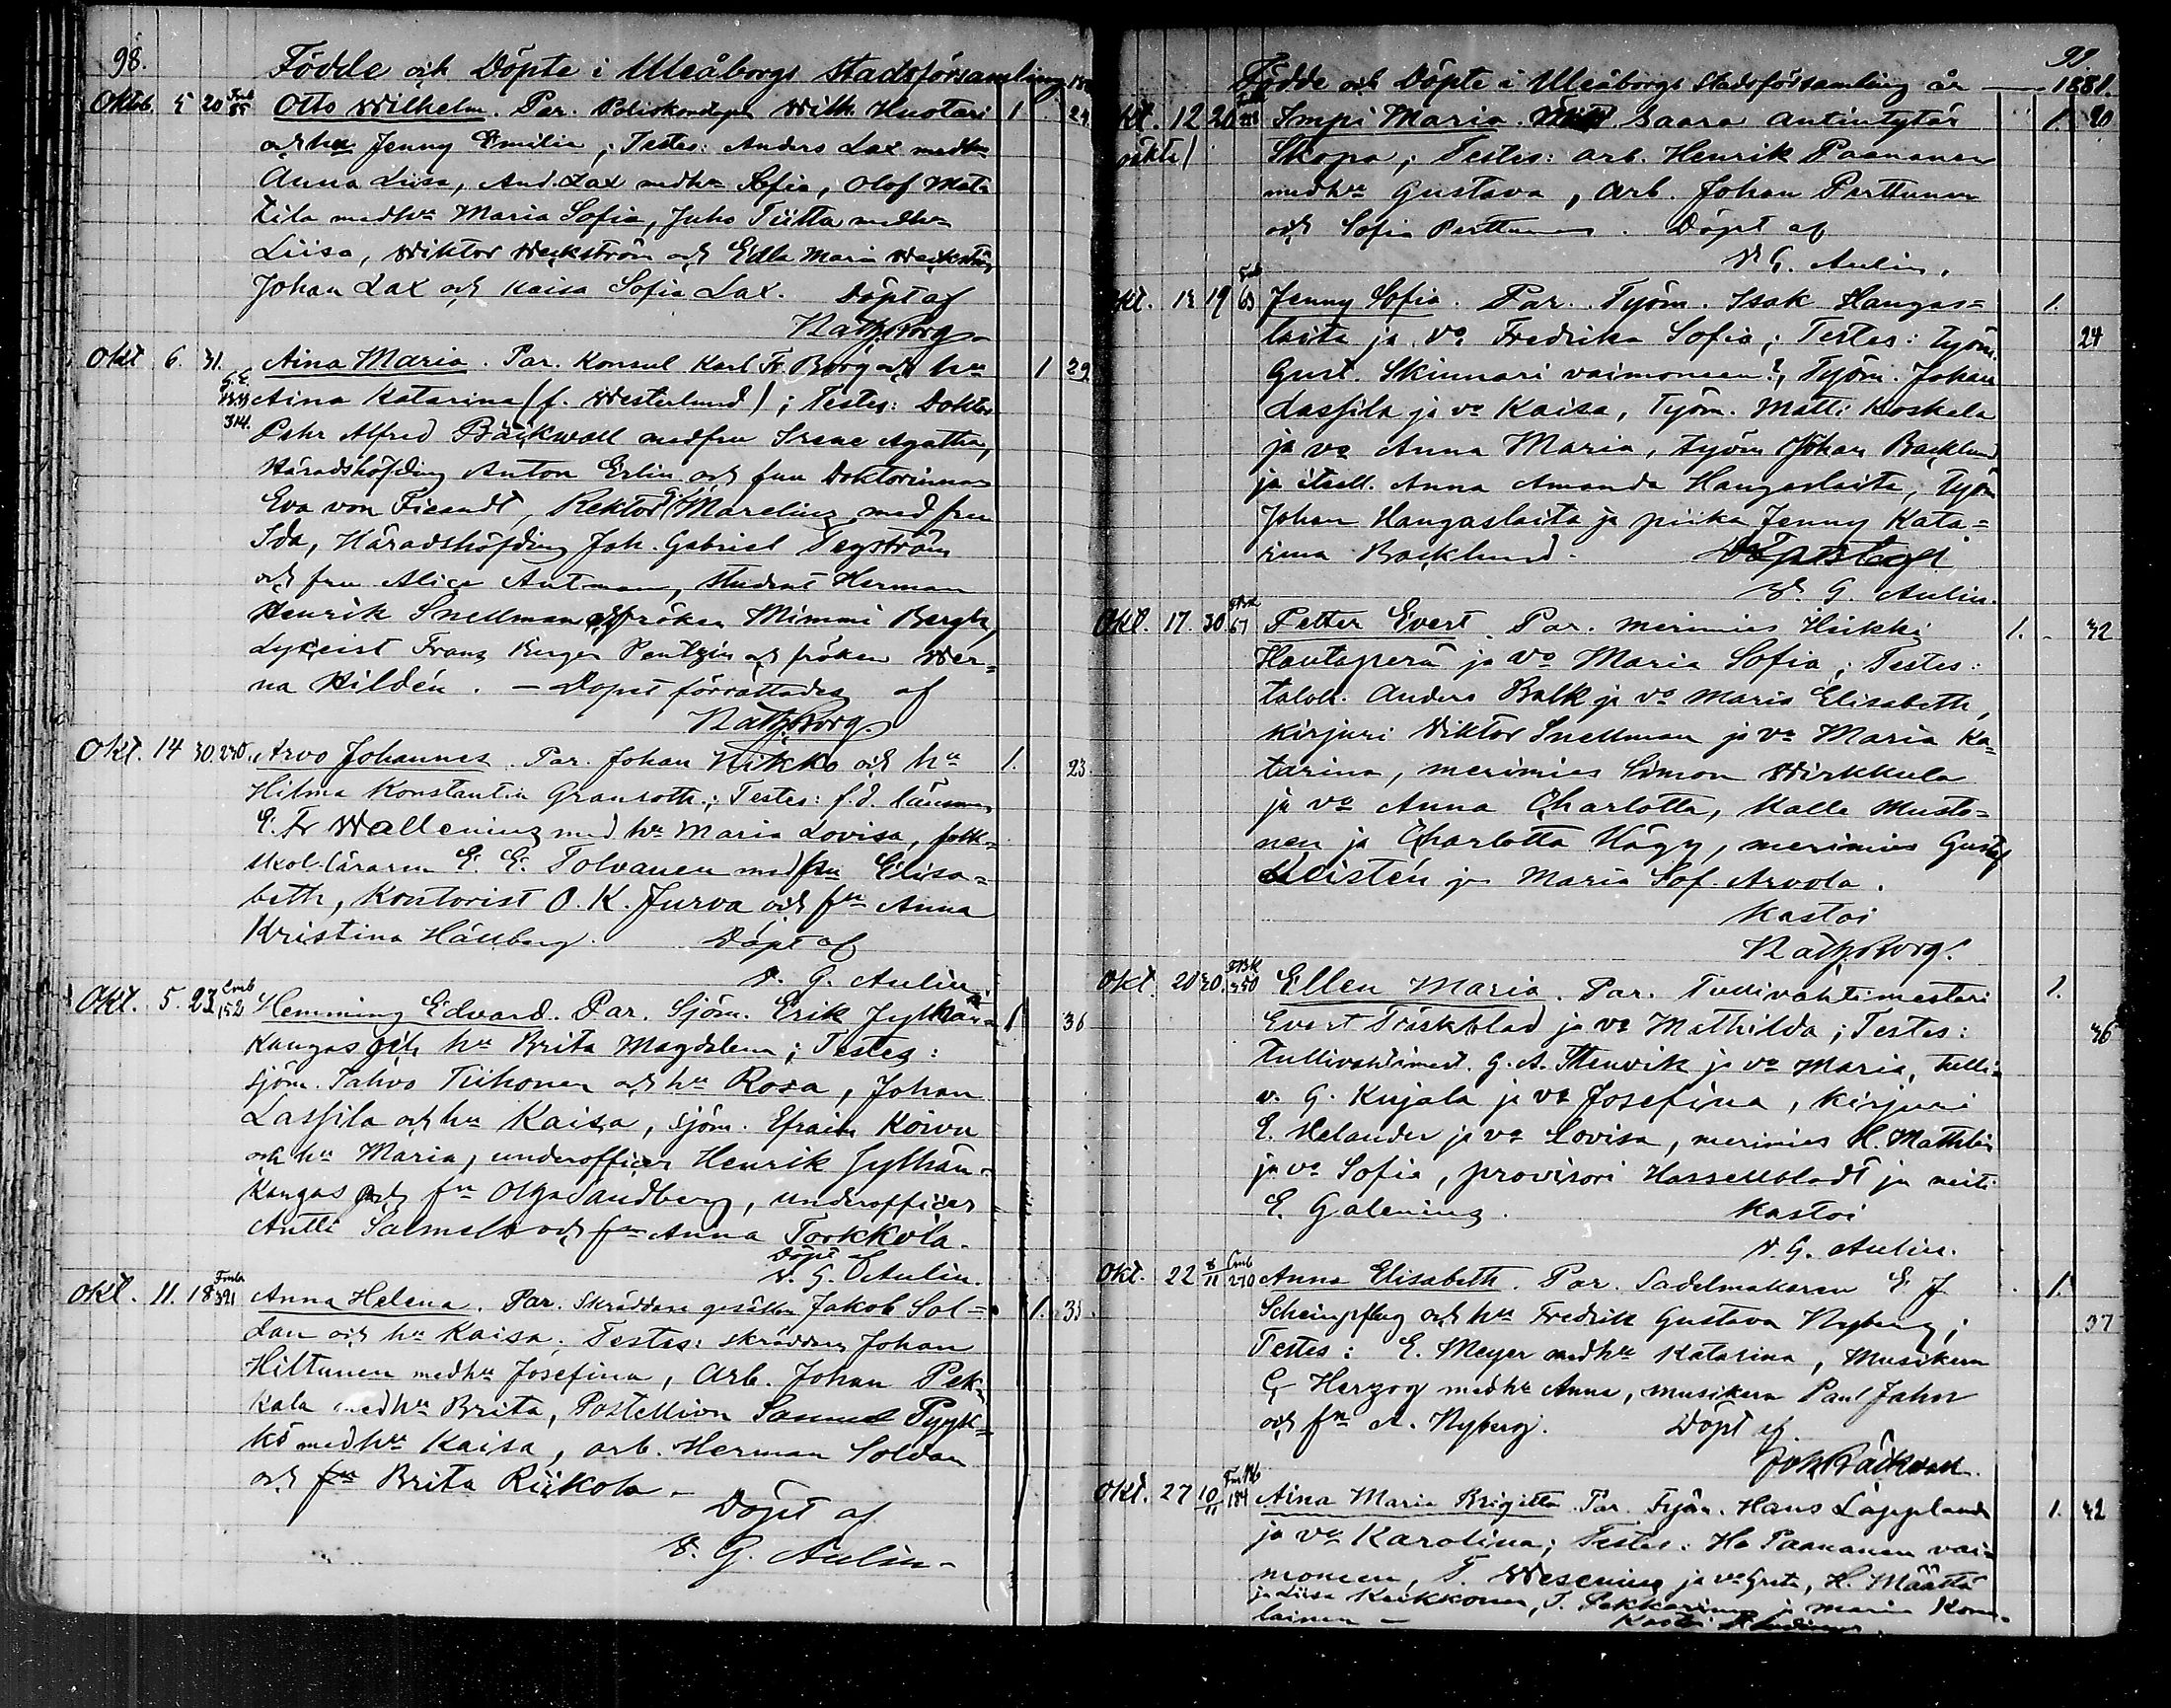 98.
Födde och Döpte i Uleåborgs Stadsförsamling
Oktob. 5 20 Fmb 85 Otto Wilhelm. Par. Wilh. Huotari 1 24
och hu Jenny Emilia; Testes: Anders Lax medhu
Anna Liisa, And. Lax medhu Sofia, Olof Mata
tila medhu Maria Sofia, Juho Tiitta medhu
Liisa, Wiktor Weckström och Edla Maria Weckström
Johan Lax och Kaisa Sofia Lax. Döpt af
Nath. Borg
Okt 6. 31. Aina Maria. Par. Konsul Karl Fr. Borg och hu 1 29
314. Aina Katarina (f. Westerlund); Testes: Doktor
Pehr Alfred Bäckwall medfru Irene Agatha,
Häradshöfding Anton Erlin och fru Doktorinnan
Eva von Fieandt, Rektor Marelius med fru
Ida, Häradshöfding Joh. Gabriel Tegström
och fru Alice Antman, student Herman
Henrik Snellman och fröken Mimmi Bergh,
Lyceist Franz Birger Pentzin och fröken Wer-
na Hildén. – Dopet förrättades af
Nath. Borg.
Okt. 14 30. 270. Arvo Johannes. Par. Johan Nikko och hu 1. 23.
Hilma Konstantia Granroth.; Testes: f.d. länsman
E. Fr Wallenius med hu Maria Lovisa, folk-
skol-läraren E. E. Tolvanen med fru Elisa-
beth, Kontorist O. K. Jurva och fru Anna
Kristina Hällberg. Döpt af
V. G. Aulin
Okt. 5. 23 Lmb 152 Hemming Edvard. Par. Sjöm. Erik Jylhän- 1 36
kangas och hu Brita Magdalena; Testes:
sjöm. Pahvo Tiihonen och hu Rosa, Johan
Lassila och hu Kaisa, sjöm. Efraim Koivu
och hu Maria, underofficer Henrik Jylhän-
kangas och fru Olga Sandberg, underofficer
Antti Salmela och fru Anna Torkkola.
Döpt af
V. G. Aulin.
Okt. 11. 18 Fmb 391 Anna Helena. Par. Skräddare gesällen Jakob Sol- 1. 33.
dan och hu Kaisa. Testes: skräddare Johan
Hiltunen medhu Josefina, Arb. Johan Pek-
kala medhu Brita, Postellion Samuel Pyyk-
kö medhu Kaisa, arb. Herman Soldan
och fru Brita Riikola –
Döpt af
V. G. Aulin –
99.
Födde och Döpte i Uleåborgs Stadsförsamling år – 1881.
Okt. 12 20 Impi Maria. Saara Antintytär 1. 20
Skopa; Testes: arb. Henrik Paananen
medhu Gustava, Arb. Johan Perttunen
och Sofia Perttunen. Döpt af
V. G. Aulin.
Okt. 13 19 63 Jenny Sofia. Par. Työm. Isak Hangas- 1.
laita ja vo Fredrika Sofia; Testes: työm. 24
Gust. Skinnari vaimoneen, Työm. Johan
Lassila ja vo Kaisa, Työm. Matti Koskela
ja vo Anna Maria, työm Johan Backlund
ja itsell. Anna Amanda Hangaslaita, Työm
Johan Hangaslaita ja piika Jenny Kata-
rina Backlund.
V. G. Aulin.
Okt. 17. 30 67 Petter Evert. Par. merimies Heikki 1. 32
Hautaperä ja vo Maria Sofia; Testes:
talok. Anders Balk ja vo Maria Elisabeth,
kirjuri Viktor Snellman ja vo Maria Ka-
tarina, merimies Simon Wirkkula
ja vo Anna Charlotta, Kalle Musto-
nen ja Charlotta Hägg, merimies Gustaf
Leistén ja Maria Sof. Arvola.
Kastoi
Nath. Borg.
Okt. 20 30. 350 Ellen Maria. Par. Tullivahtimestari 1.
Evert Träskblad ja vo Mathilda; Testes: 36
Tullivahtimest. G. A. Stenvik ja vo Maria, tulli-
v. G. Kujala ja vo Josefina, kirjuri
E. Helander ja vo Lovisa, merimies H. Mathlin
ja vo Sofia, provisori Hassellbladt ja neiti
E. Galenius. Kastoi
V. G. Aulin.
Okt. 22 8/11 Lmb 270 Anna Elisabeth. Par. Sadelmakaren E. J. 1.
Scheinpflug och hu Fredrik Gustava Nyberg; 37
Testes: E. Meyer medhu Katarina, Musikern
G Herzog medhu Anna, musikern Paul Jahn
och fru A. Nyberg. Döpt af.
Joh. Bäckvall.
Okt. 27 10/11 184 Aina Maria Brigitta. Par. Työm. Hans Läpplander 1. 42
ja vo Karolina; Testes: Ha Paananen vai-
moneen, T. Wesenius ja vo Greta, H. Määttä
ja Liisa Keikkonen, T. Pekkarinen ja Maria Kone-
lainen – Kastoi